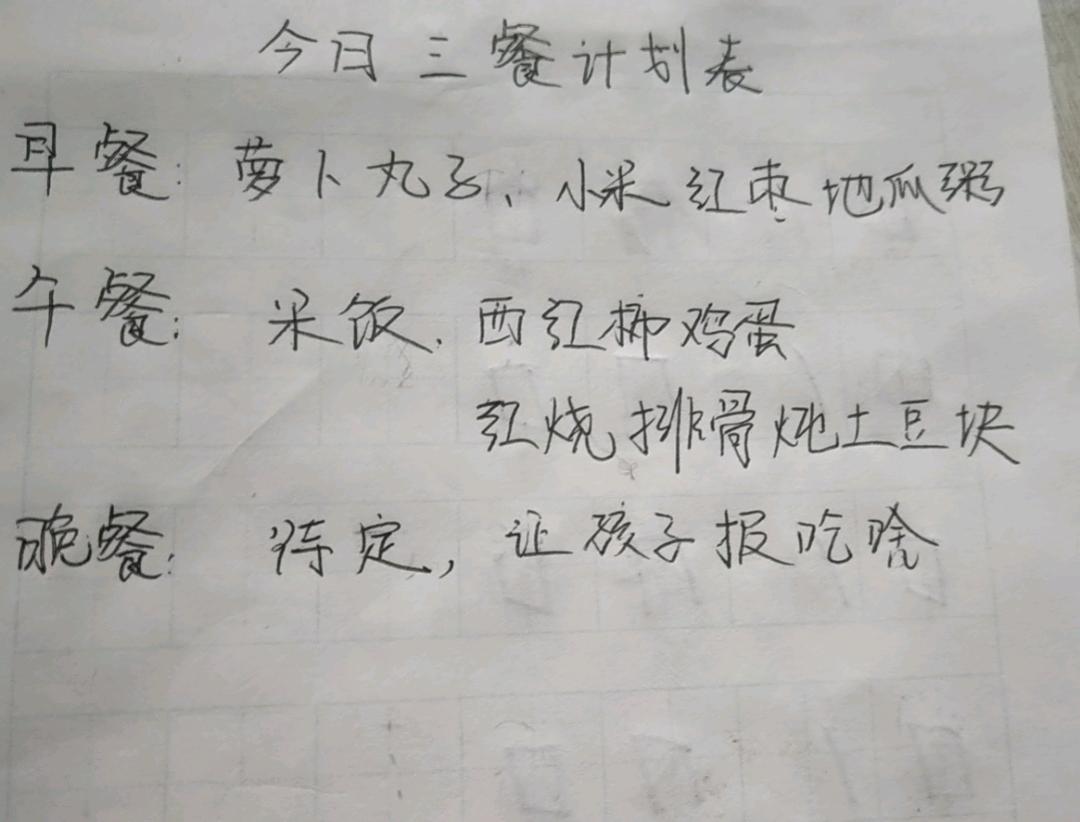 今日三餐计划表
早餐：萝卜丸子、小米红枣地瓜粥
午餐：米饭、西红柿鸡蛋
红烧排骨炖土豆块
晚餐：待定，让孩子报吃啥